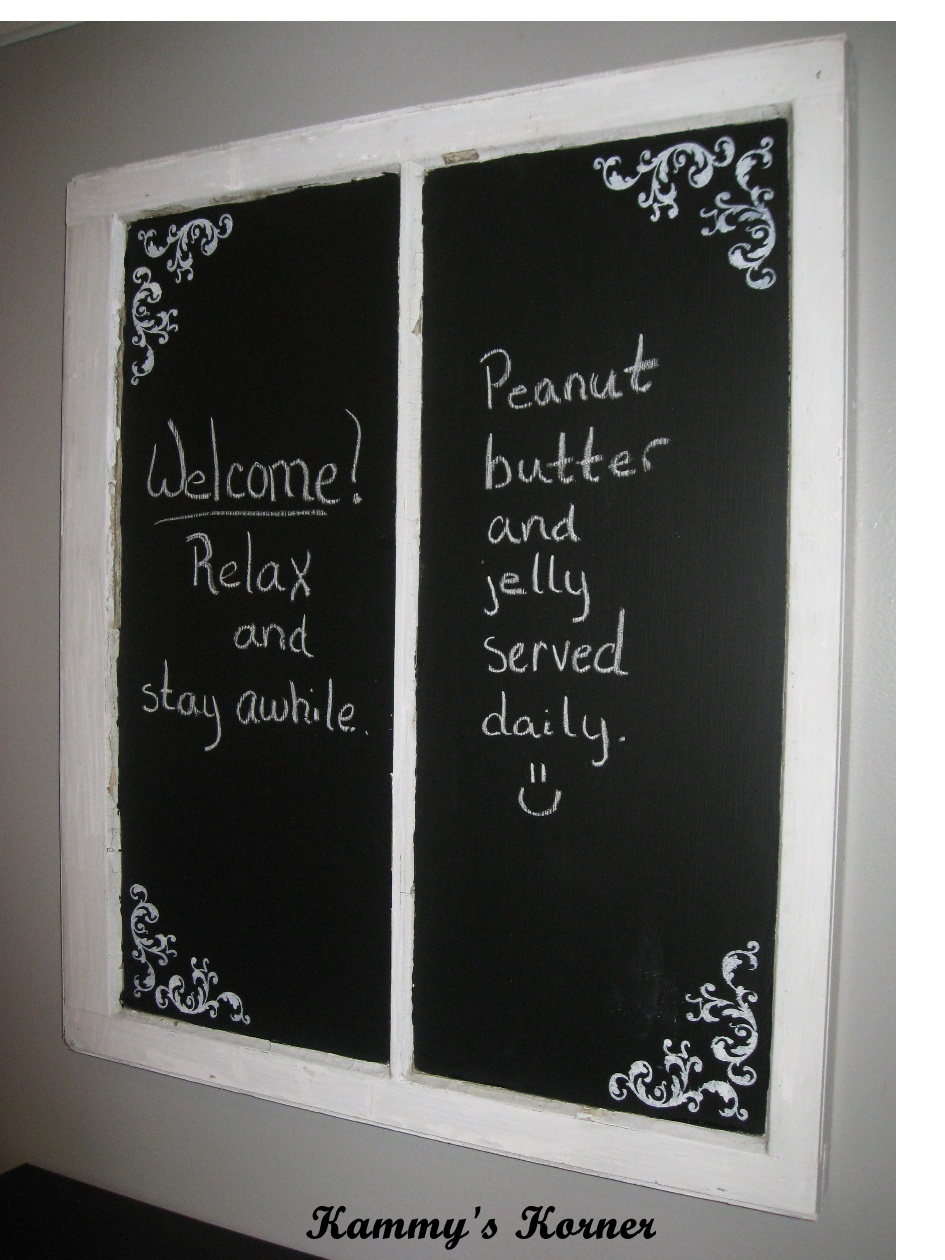 Welcome!
Relax
and
stay awhile.
Peanut
butter
and
jelly
served
daily.
Kammy's Korner